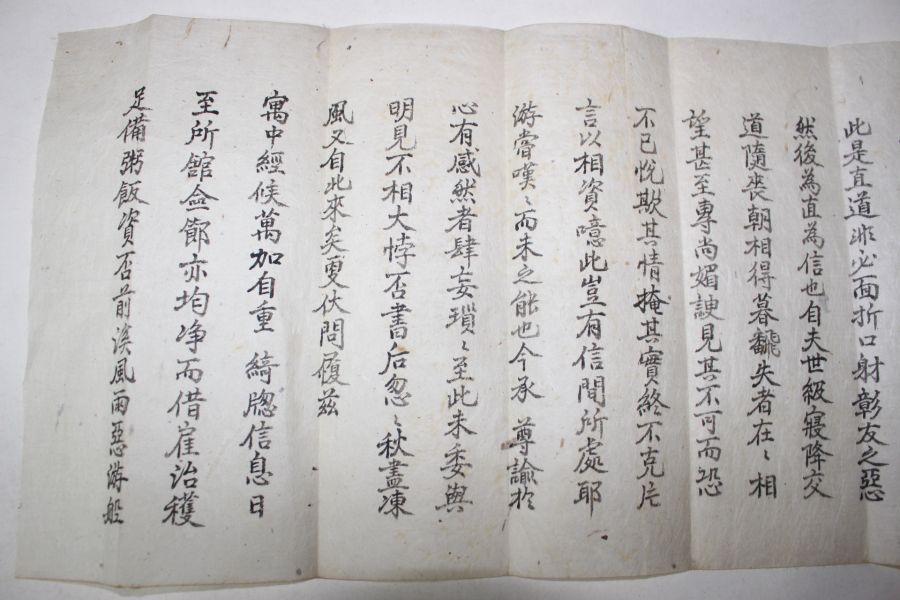 此是直道非必面折口射彰友之惡
然後為直為信也自夫世級寢降交
道隨喪朝相得暮飜失者在〻相
望甚至專尚媚諛見其不可而恐
不已悅欺其情掩其實終不克片
言以相資噫此豈有信間所處耶
游嘗嘆〻而未之能也今承 尊諭於
心有感然者肆妄瑣〻至此未委與
明見不相大悖否書后忽〻秋盡凍
風又自此來矣更伏問履玆
寓中經候萬加自重 綺牕信息日
至所館僉節亦均净而借雇治穫
足備粥飯資否前溪風雨惡游船